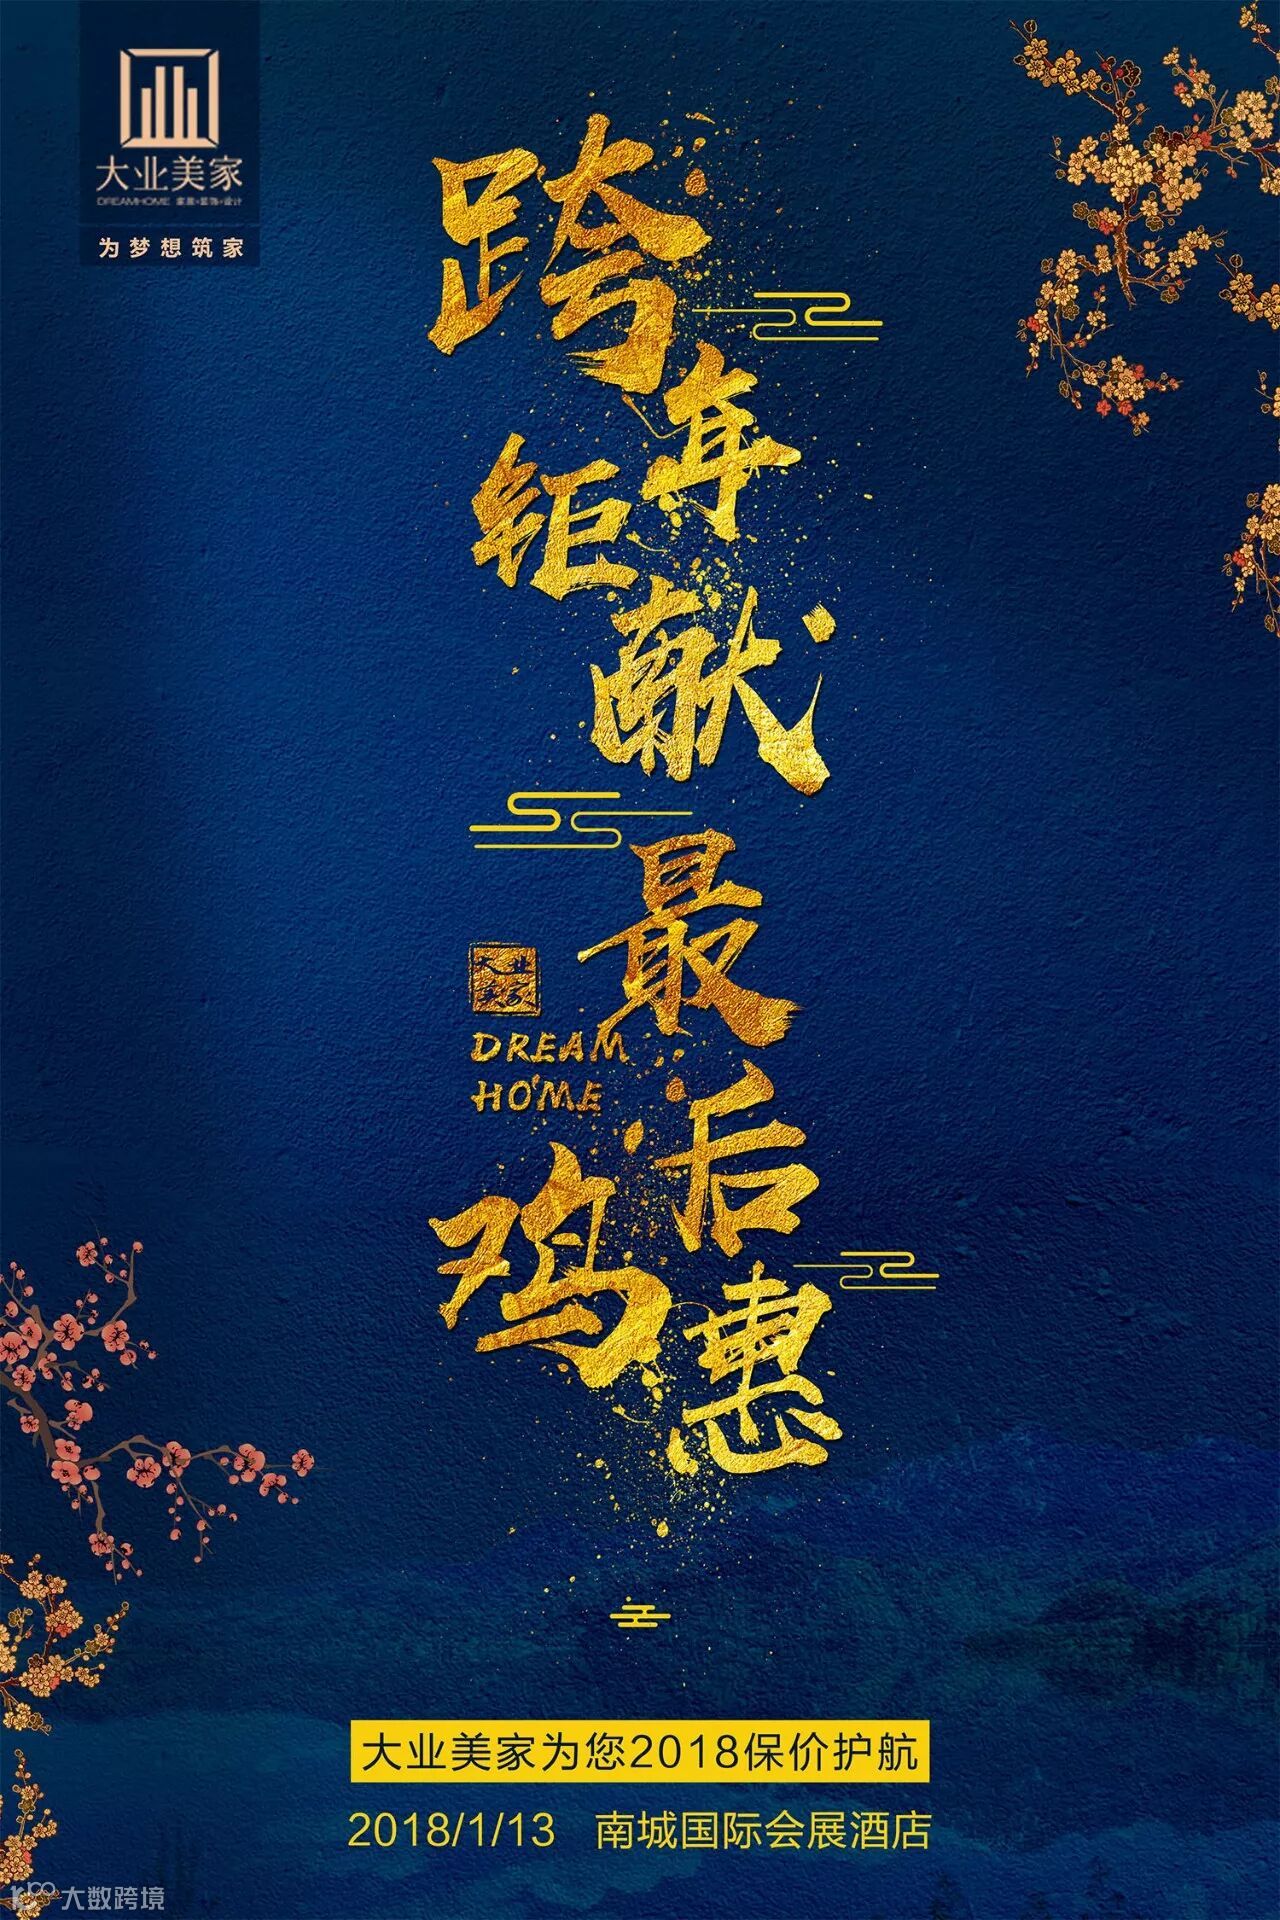 大业美家
DREAMHOME 家居·装饰·设计
为梦想筑家
跨年
钜献
最后
鸡惠
大业
美家
DREAM
HOME
大业美家为您2018保价护航
2018/1/13 南城国际会展酒店
大数跨境